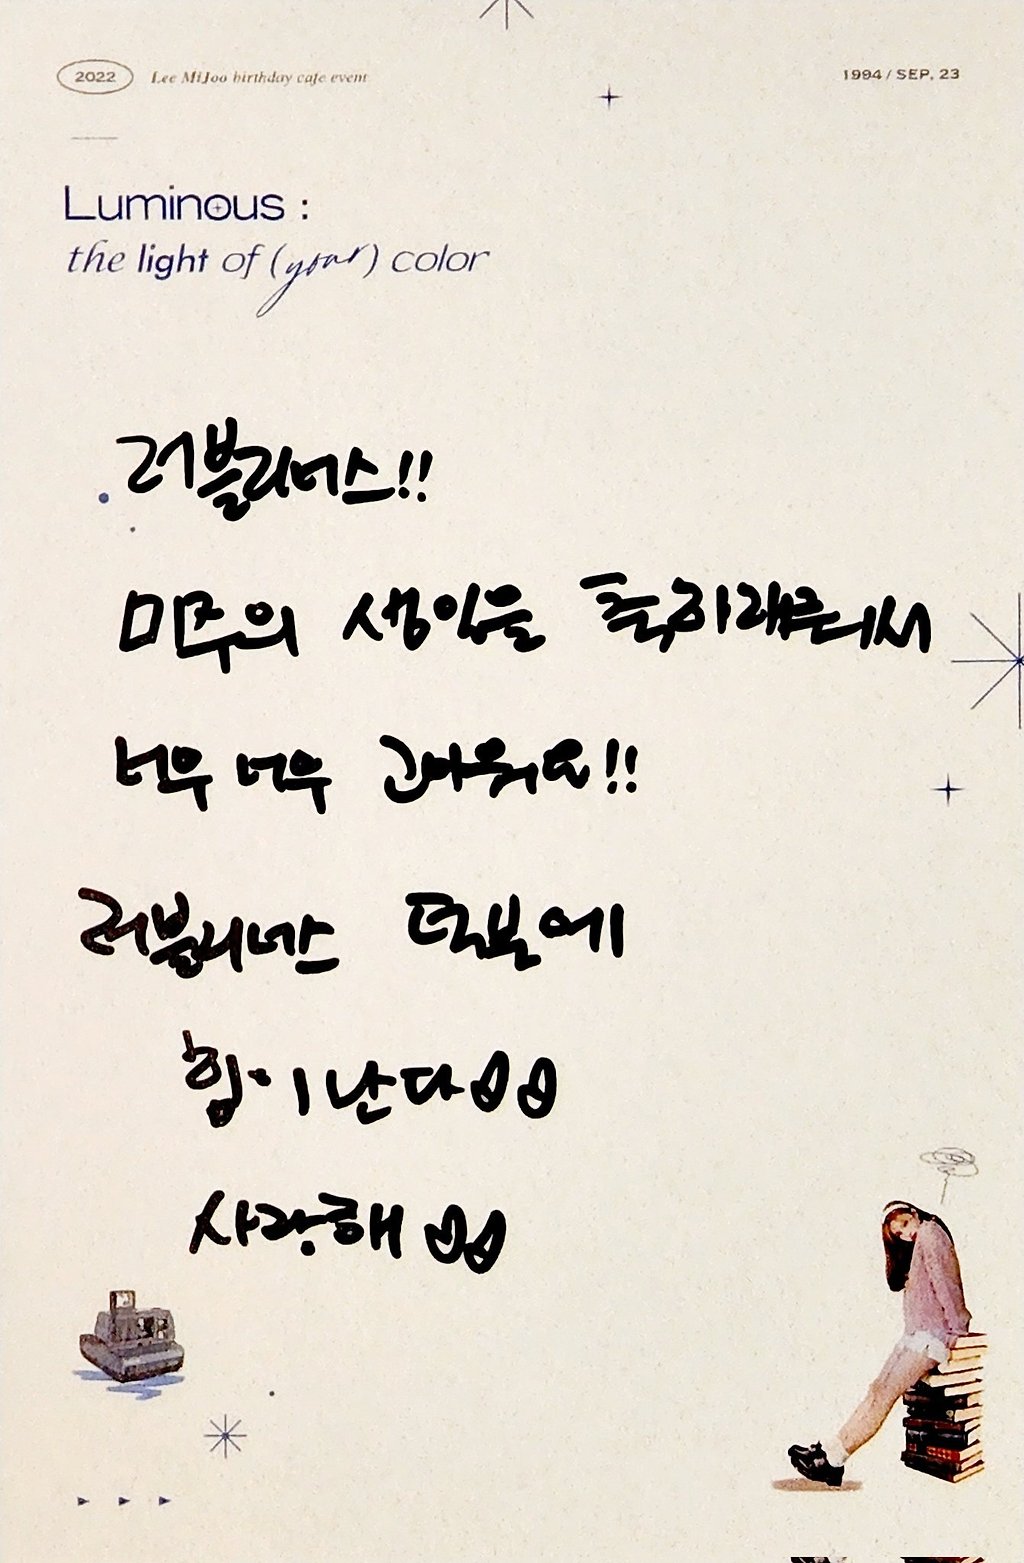 2022 Lee MiJoo birthday cafe event
1994 / SEP. 23
Luminous :
the light of (your) color
러블리너스!!
미주의 생일을 축하해주셔서
너무 너무 고마워요!!
러블리너스 덕분에
힘이 난다
사랑해